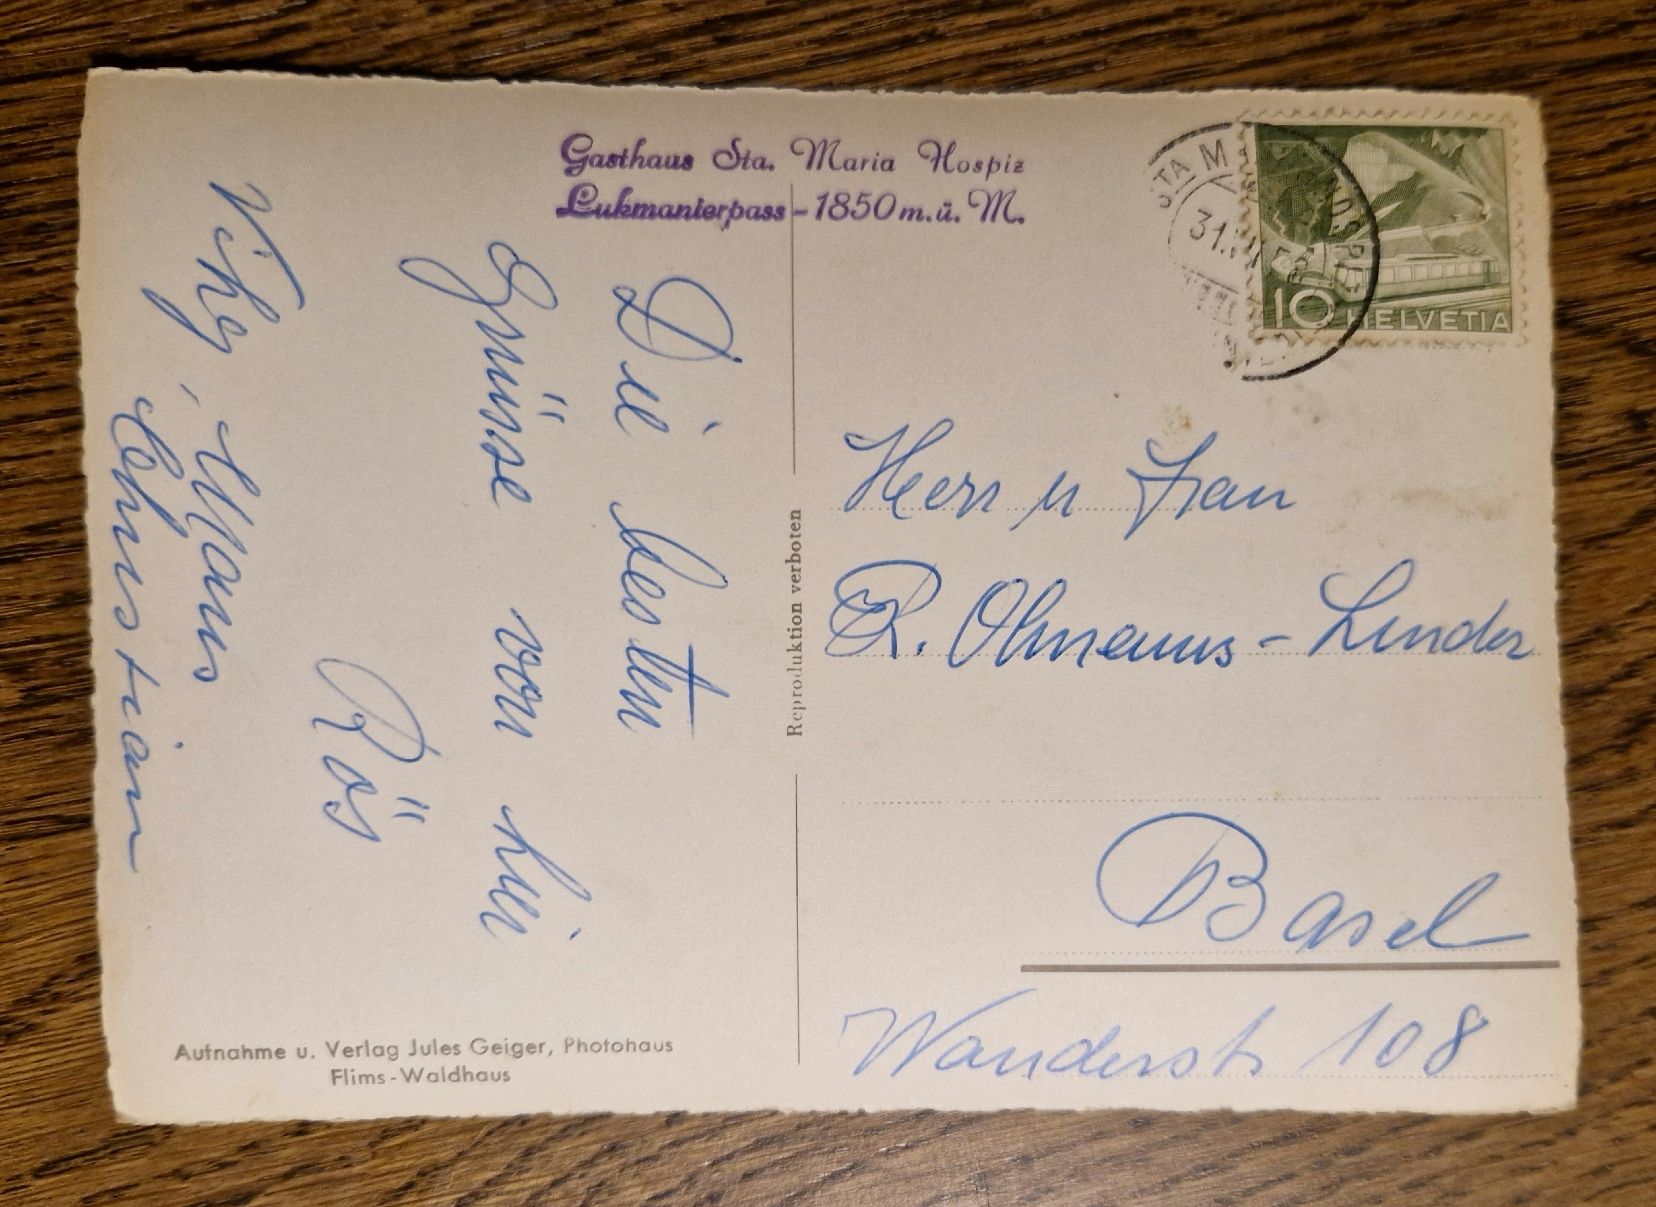 Gasthaus Sta. Maria Hospiz
Lukmanierpass - 1850 m. ü. M.
STA M
31.
10
HELVETIA
Die besten
Grüsse von hier
Rös
Vikg, Hans
Christian
Reproduktion verboten
Herrn u Frau
R. Ohnemus - Linder
Basel
Wanderstr 108
Aufnahme u. Verlag Jules Geiger, Photohaus
Flims - Waldhaus